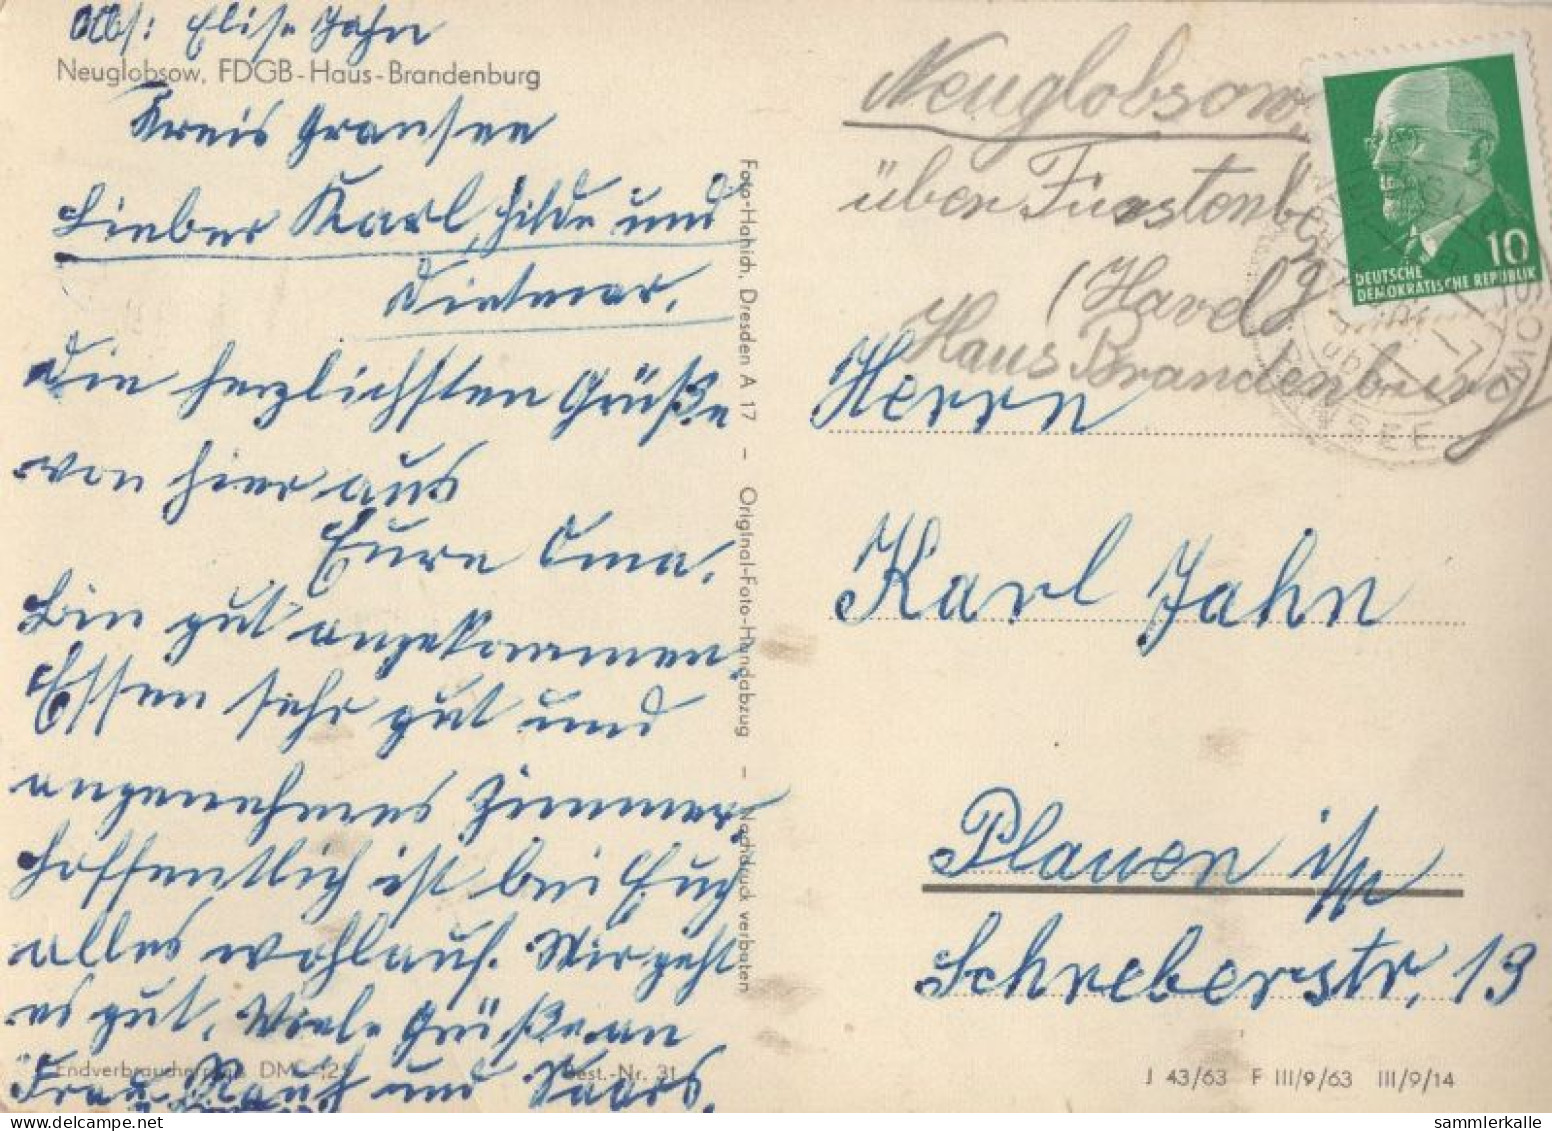 Abs: Elise Jahn
Neuglobsow, FDGB-Haus-Brandenburg
Kreis Gransee
Lieber Karl, Hilde und
Dietmar.
Die herzlichsten Grüße
von hier aus
Eure Oma.
Bin gut angekommen.
Essen sehr gut und
angenehmes Zimmer.
Hoffentlich ist bei Euch
alles wohlauf. Mir geht
es gut. Viele Grüße an
Frau und
Endverbraucherpreis DM
Best.-Nr. 31
Foto-Hahich, Dresden A 17 – Original-Foto-Handabzug – Nachdruck verboten
Neuglobsow
über Fürstenberg
(Havel)
Haus Brandenburg
10
DEUTSCHE
DEMOKRATISCHE REPUBLIK
Herrn
Karl Jahn
Plauen
Schreberstr. 19
J 43/63 F III/9/63 III/9/14
sammlerkalle